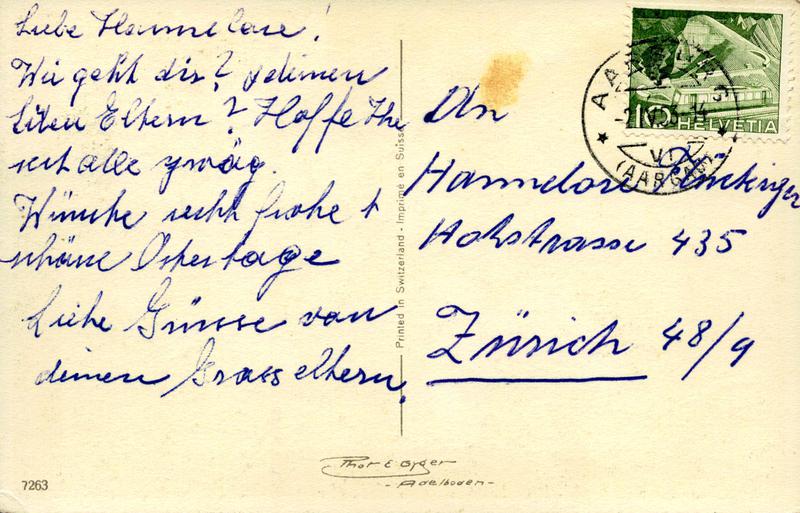 Liebe Hannelore!
Wie geht dir? & deinen
lieben Eltern? Hoffe Ihr
seit alle zwäg.
Wünsche recht frohe &
schöne Ostertage
Liebe Grüsse von
deinen Grosseltern.
An
Hannelore
Hohlstrasse 435
Zürich 48/9
Printed in Switzerland - Imprimé en Suisse
10 HELVETIA
(AARGAU)
Thor E Gyger
- Adelboden -
7263